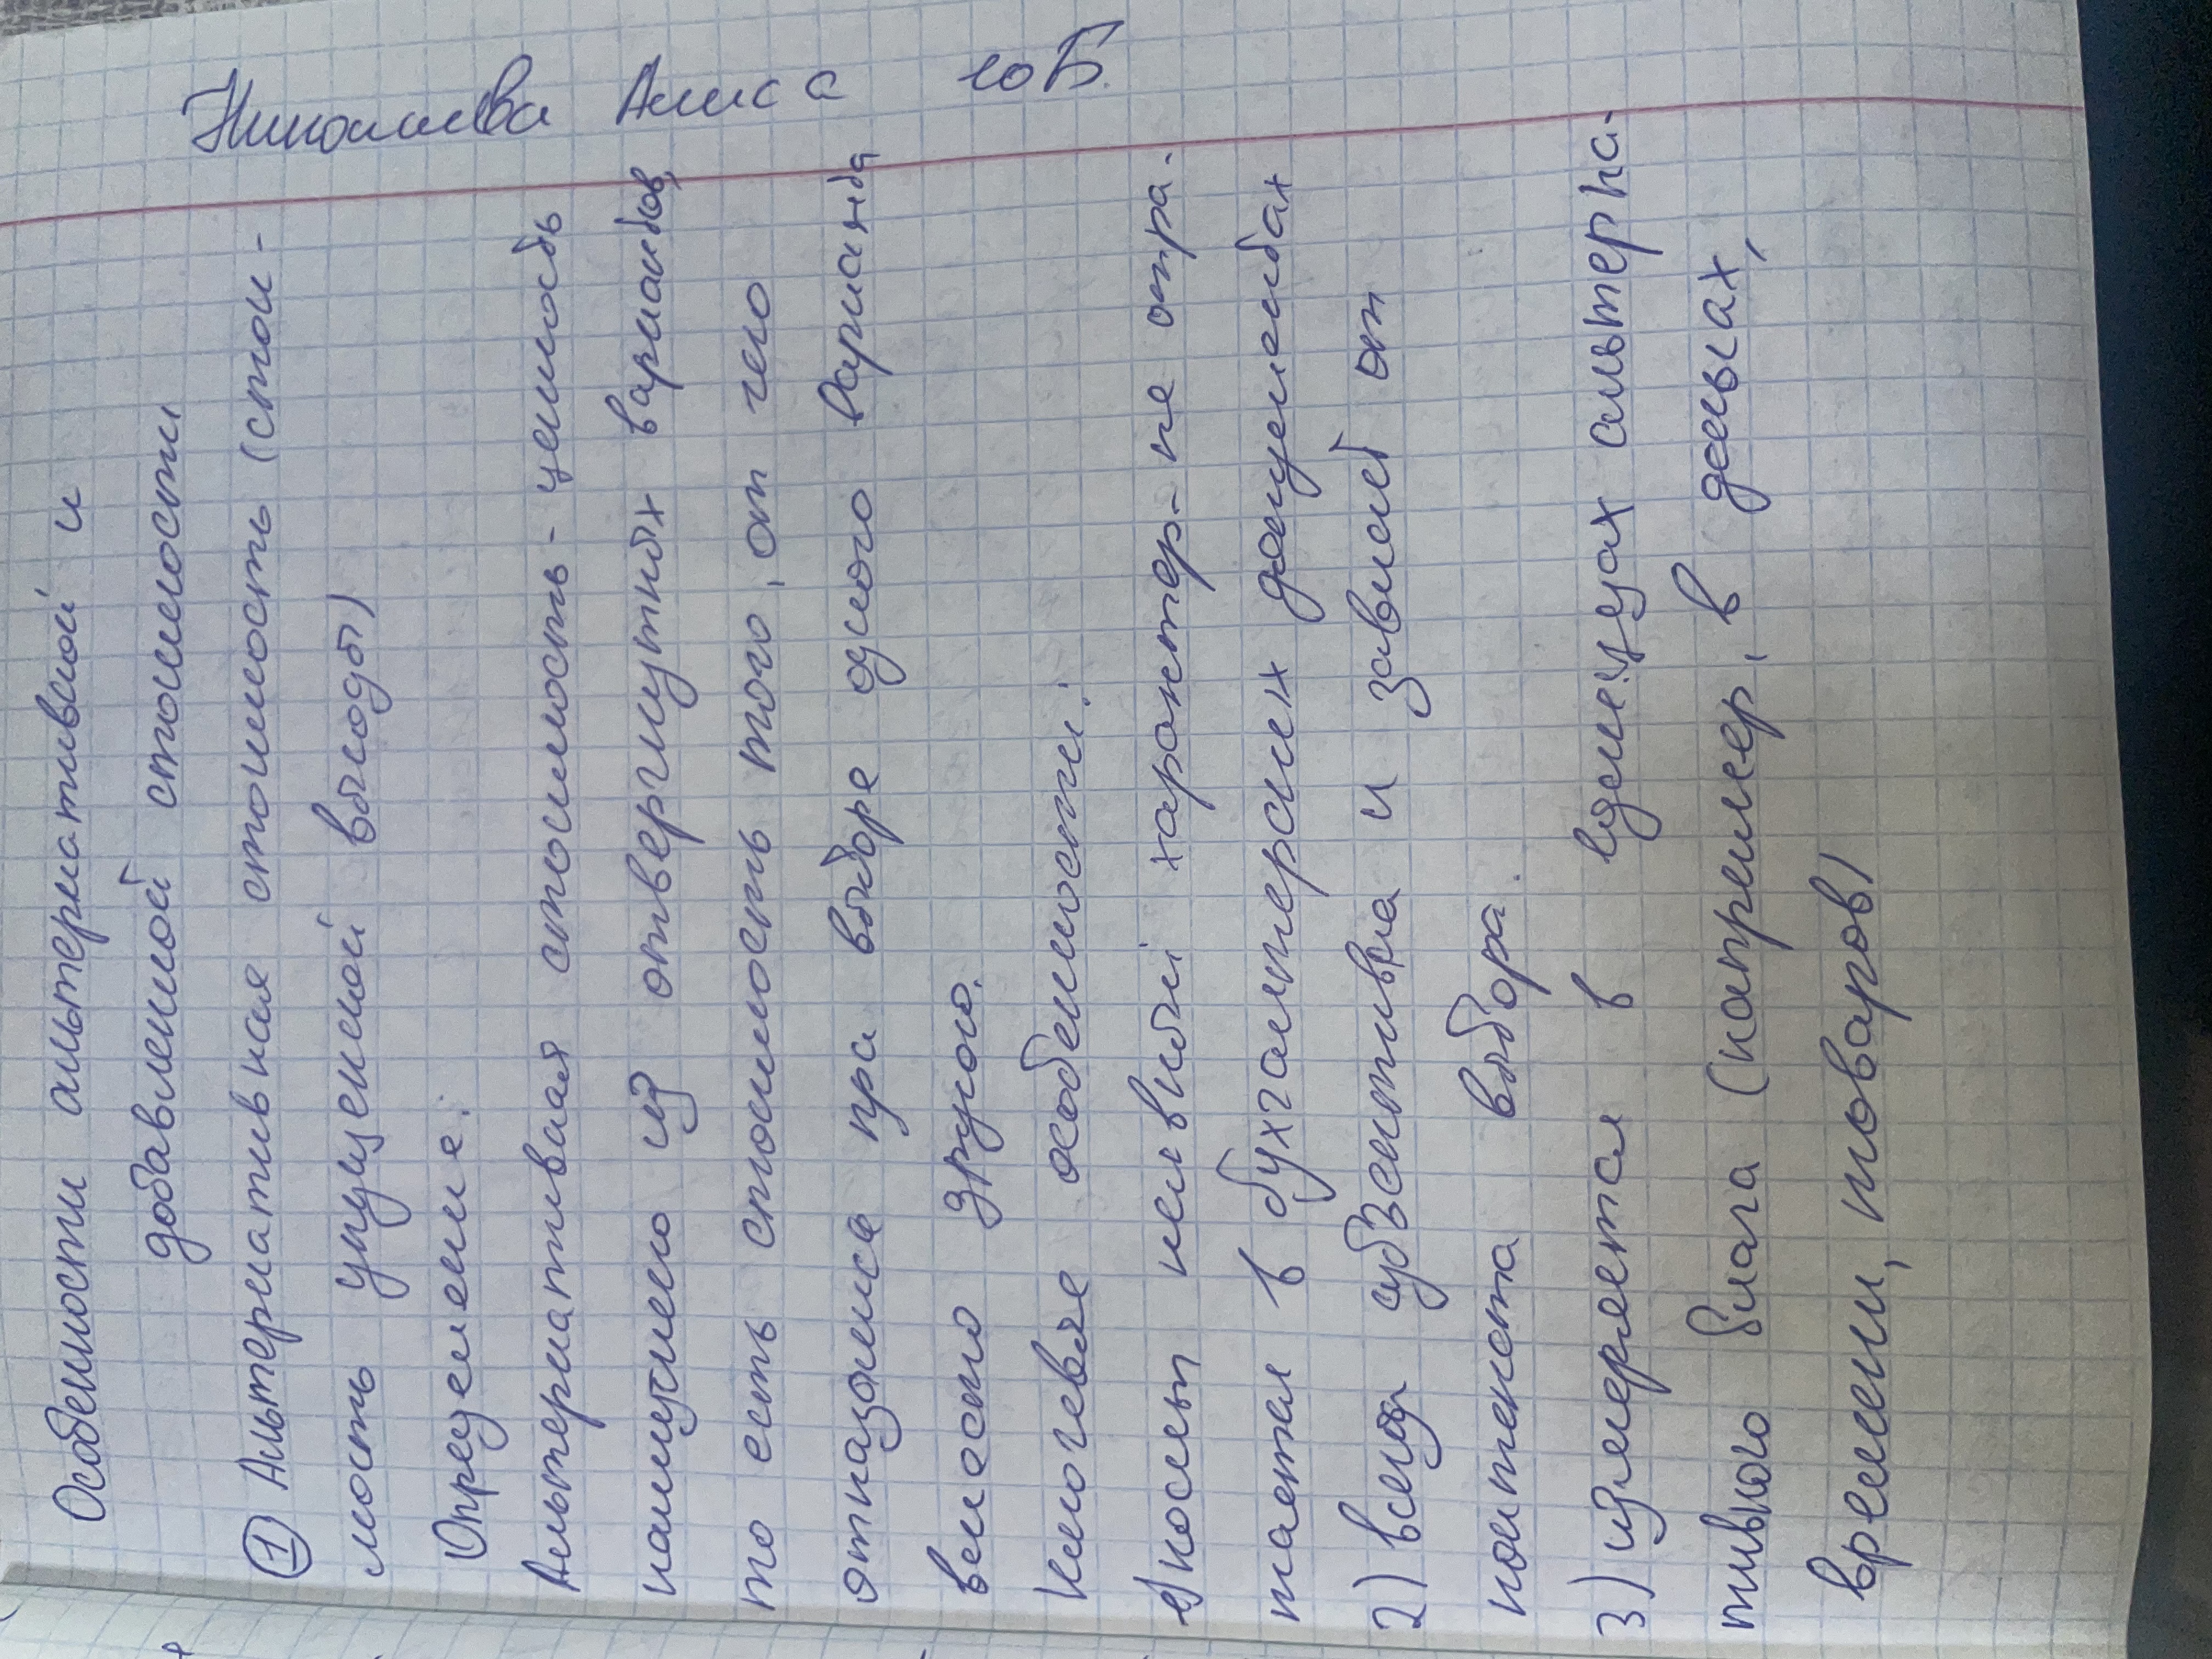 Николаева Алиса 10Б.
Особенности альтернативной и
добавленной стоимости
① Альтернативная стоимость (стои-
мость упущенной выгоды)
Определение:
Альтернативная стоимость - ценность
наилучшего из отвергнутых вариантов,
то есть стоимость того, от чего
отказались при выборе одного варианта
вместо другого.
Ключевые особенности:
1) носит неявный характер - не отра-
жается в бухгалтерских документах
2) всегда субъективна и зависит от
контекста выбора.
3) измеряется в единицах альтерна-
тивного блага (например, в деньгах,
времени, товаров)